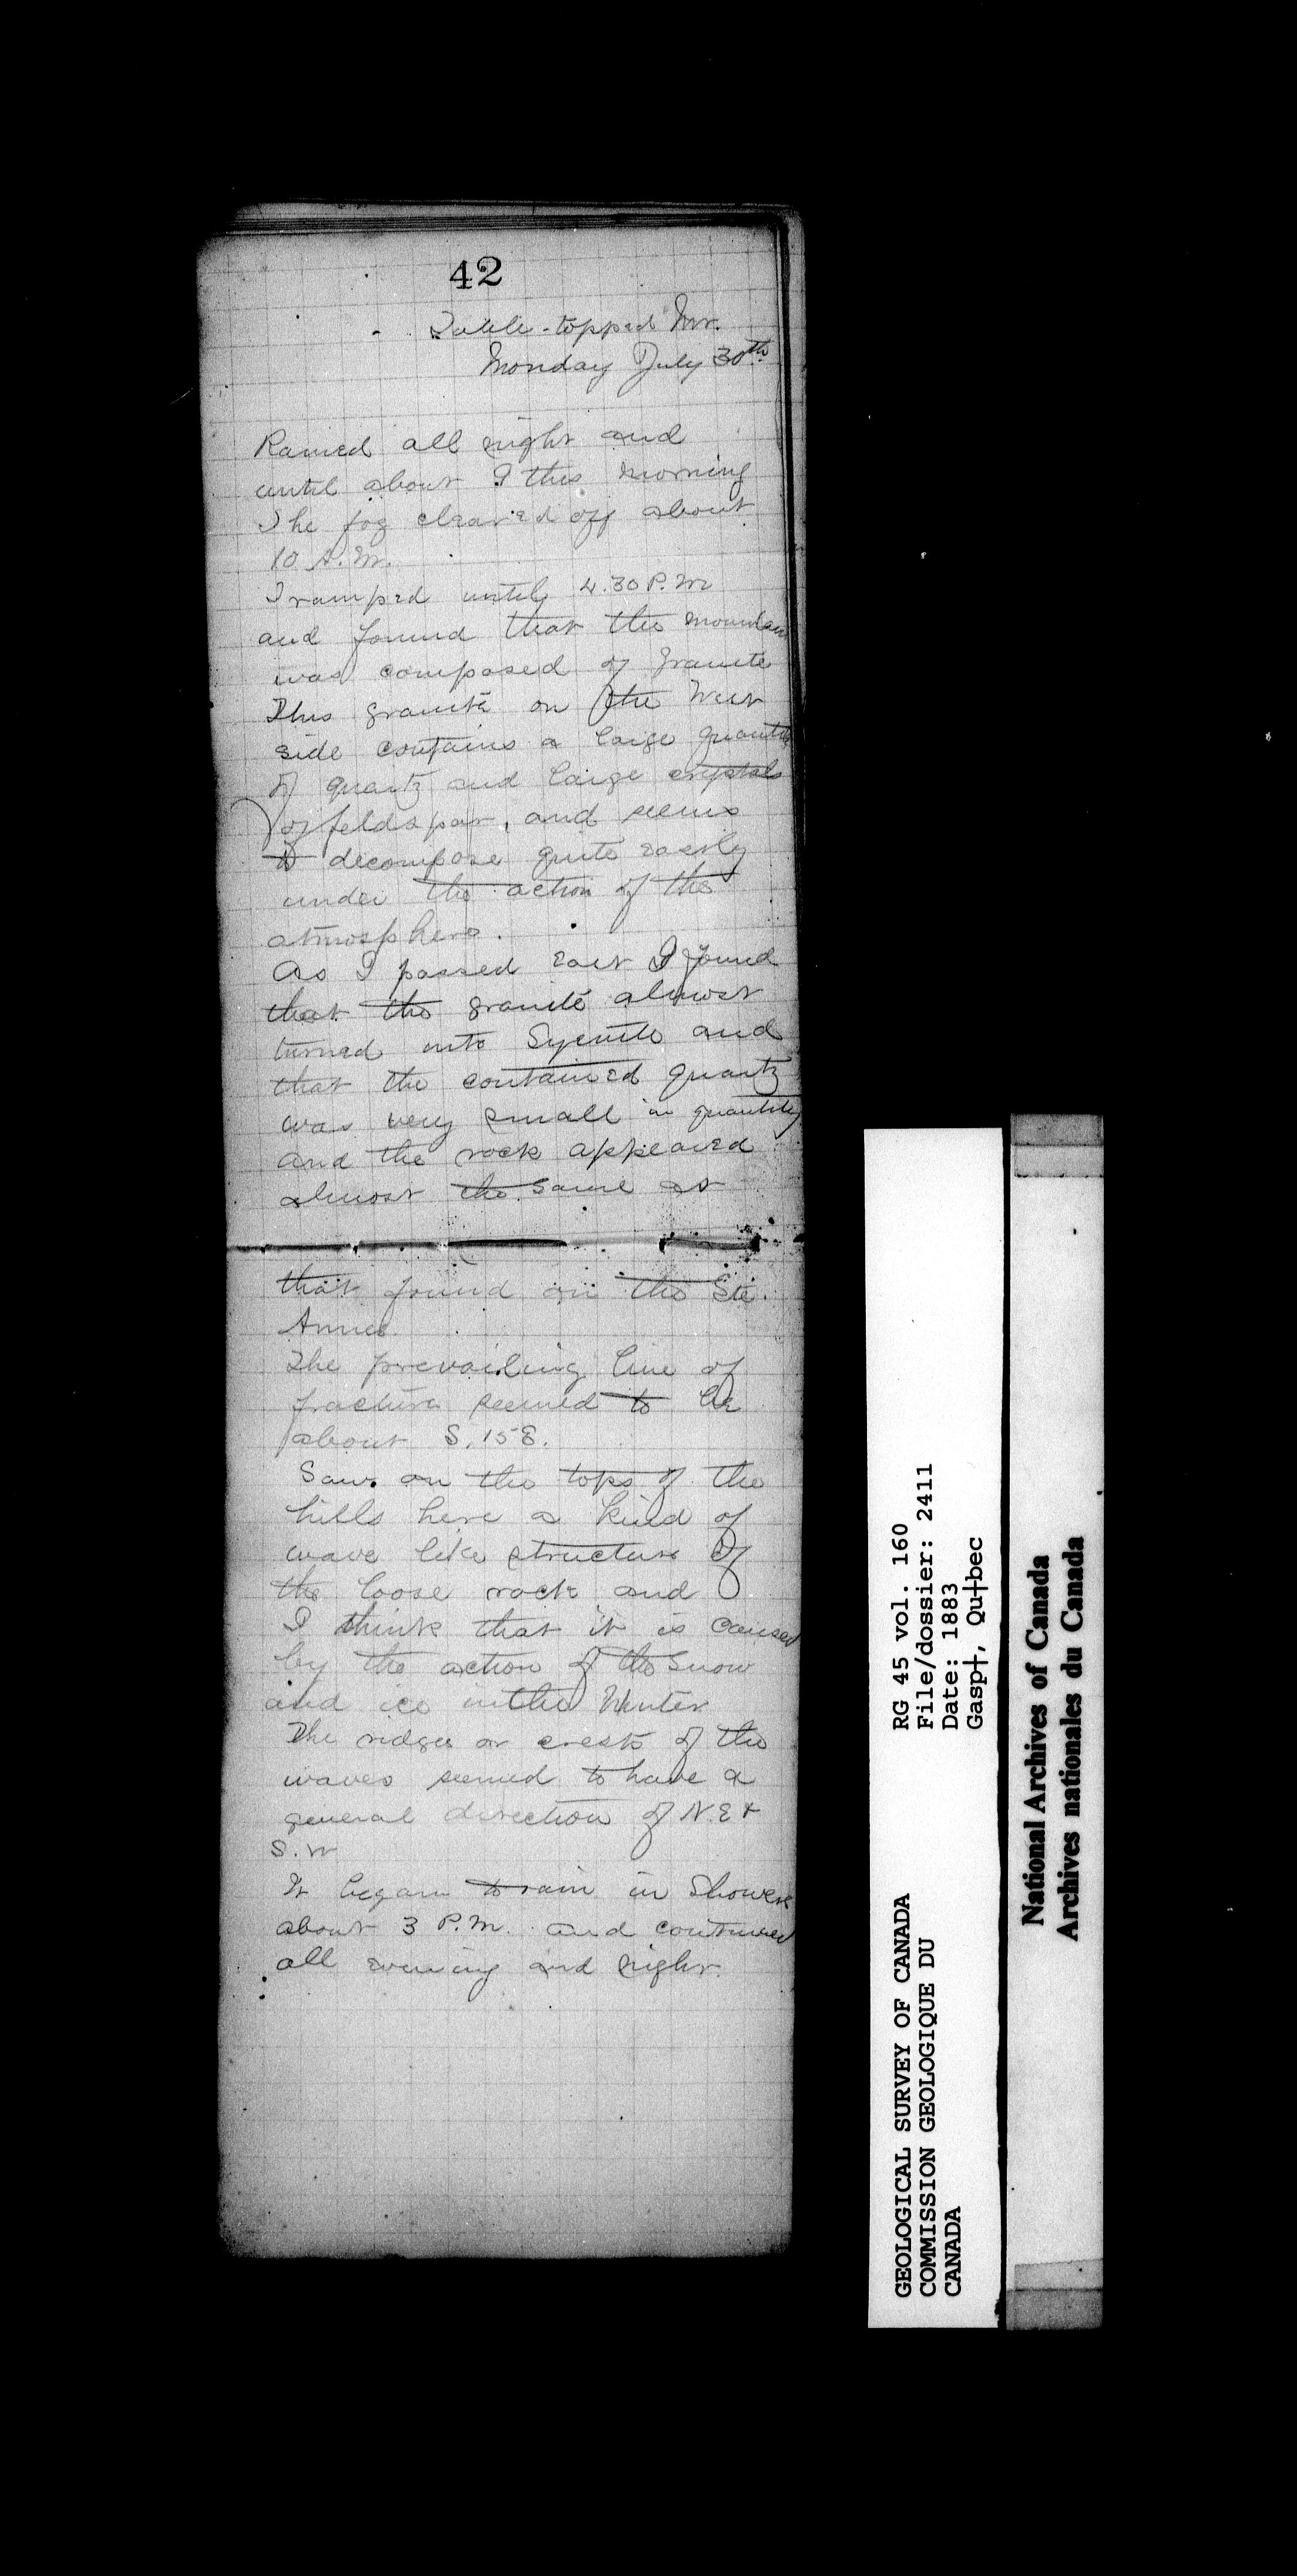 42
Table-topped Mt.
Monday July 30th
Rained all night and
until about 9 this morning
The fog cleared off about
10 A.M.
Tramped until 4.30 P.M
and found that the mountain
was composed of granite
This granite on the West
side contains a large quantity
of quartz and large crystals
of feldspar, and seems
to decompose quite easily
under the action of the
atmosphere.
As I passed East I found
that the granite almost
turned into Syenite and
that the contained quartz
was very small in quantity
and the rock appeared
almost the same as
that found on the Ste.
Annes.
The prevailing line of
fracture seemed to be
about S. 15 E.
Saw on the tops of the
hills here a kind of
wave like structure of
the loose rock and
I think that it is caused
by the action of the snow
and ice in the Winter
The ridges or crests of the
waves seemed to have a
general direction of N.E &
S.W
It began to rain in Showers
about 3 P.M. and continued
all evening and night.
GEOLOGICAL SURVEY OF CANADA
COMMISSION GEOLOGIQUE DU
CANADA
RG 45 vol. 160
File/dossier: 2411
Date: 1883
Gasp†, Qu†bec
National Archives of Canada
Archives nationales du Canada